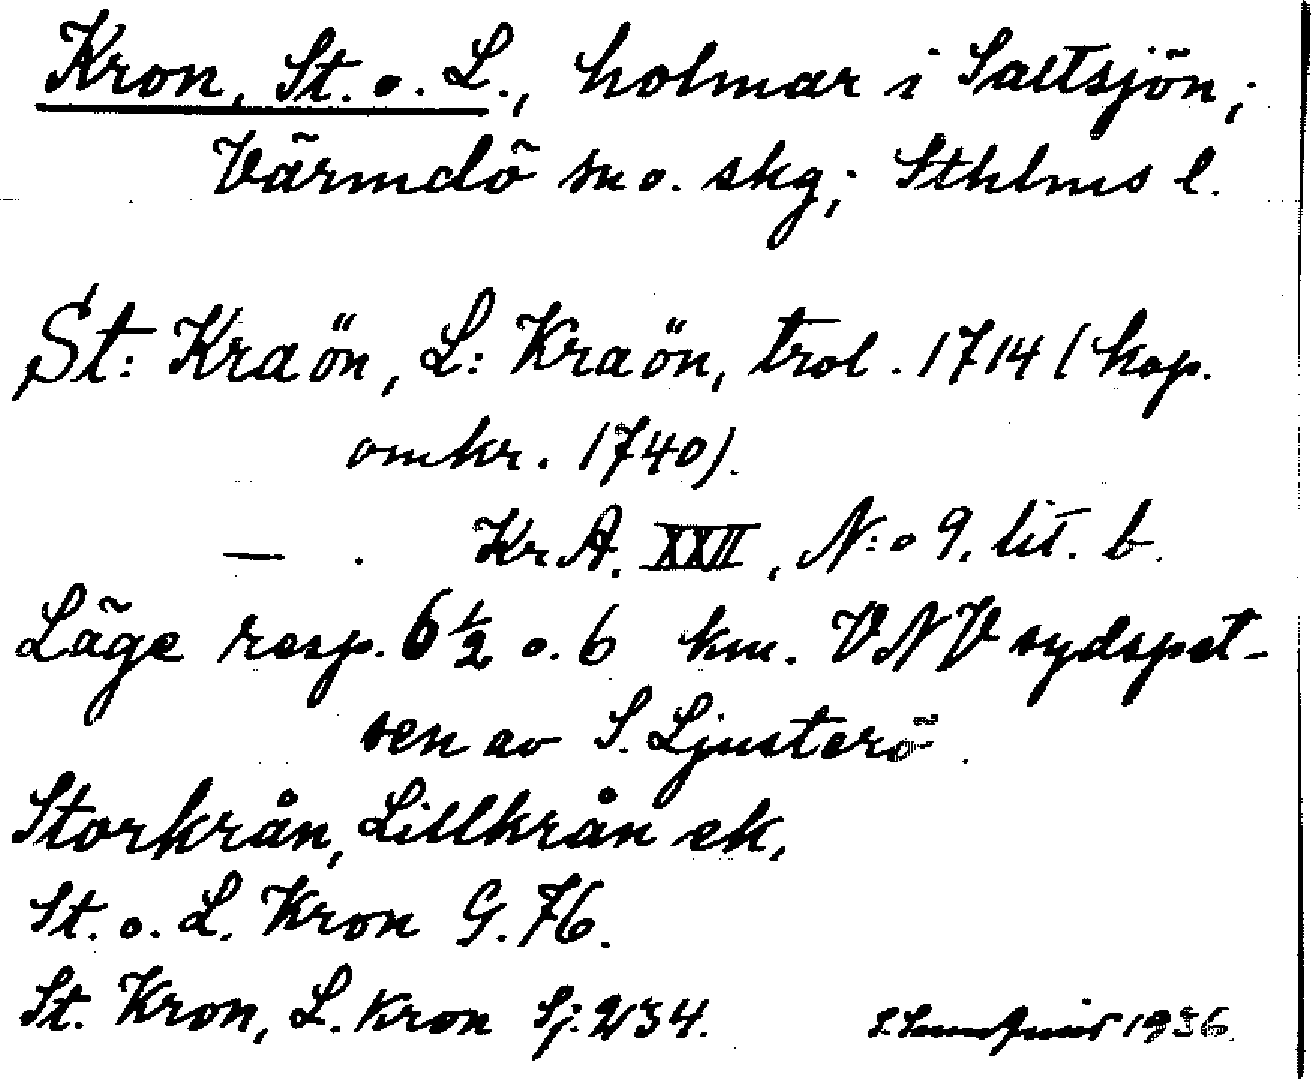 Kron, St. o. L., holmar i Saltsjön;
Värmdö sn o. skg; Sthlms l.
St: Kraön, L: Kraön, trol. 1714 (kop.
omkr. 1740).
— . KrA. XXII, N:o 9. lit. b.
Läge resp. 6 1/2 o. 6 km. VNV sydspet-
sen av S. Ljusterö.
Storkrån, Lillkrån ek,
St. o. L. Kron G. 76.
St. Kron, L. Kron Sj. 234. 1936.